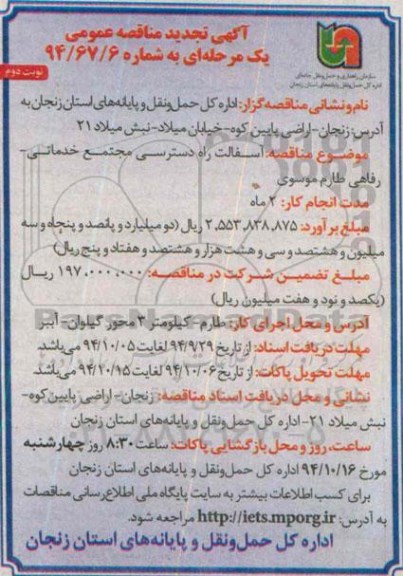 آگهی تجدید مناقصه عمومی
یک مرحله‌ای به شماره ۹۴/۶۷/۶
نوبت دوم
سازمان راهداری و حمل‌ونقل جاده‌ای
اداره کل حمل‌ونقل و پایانه‌های استان زنجان
نام و نشانی مناقصه‌گزار: اداره کل حمل‌ونقل و پایانه‌های استان زنجان به
آدرس: زنجان-اراضی پایین کوه-خیابان میلاد-نبش میلاد ۲۱
موضوع مناقصه: آسفالت راه دسترسی مجتمع خدماتی-
رفاهی طارم موسوی
مدت انجام کار: ۲ ماه
مبلغ برآورد: ۲.۵۵۳.۸۳۸.۸۷۵ ریال (دو میلیارد و پانصد و پنجاه و سه
میلیون و هشتصد و سی و هشت هزار و هشتصد و هفتاد و پنج ریال)
مبلغ تضمین شرکت در مناقصه: ۱۹۷.۰۰۰.۰۰۰ ریال
(یکصد و نود و هفت میلیون ریال)
آدرس و محل اجرای کار: طارم-کیلومتر ۳ محور گیلوان-آببر
مهلت دریافت اسناد: از تاریخ ۹۴/۹/۲۹ لغایت ۹۴/۱۰/۰۵ می‌باشد
مهلت تحویل پاکات: از تاریخ ۹۴/۱۰/۰۶ لغایت ۹۴/۱۰/۱۵ می‌باشد
نشانی و محل دریافت اسناد مناقصه: زنجان-اراضی پایین کوه-
نبش میلاد ۲۱-اداره کل حمل‌ونقل و پایانه‌های استان زنجان
ساعت، روز و محل بازگشایی پاکات: ساعت ۸:۳۰ روز چهارشنبه
مورخ ۹۴/۱۰/۱۶ اداره کل حمل‌ونقل و پایانه‌های استان زنجان
برای کسب اطلاعات بیشتر به سایت پایگاه ملی اطلاع‌رسانی مناقصات
به آدرس: http://iets.mporg.ir مراجعه شود.
اداره کل حمل‌ونقل و پایانه‌های استان زنجان